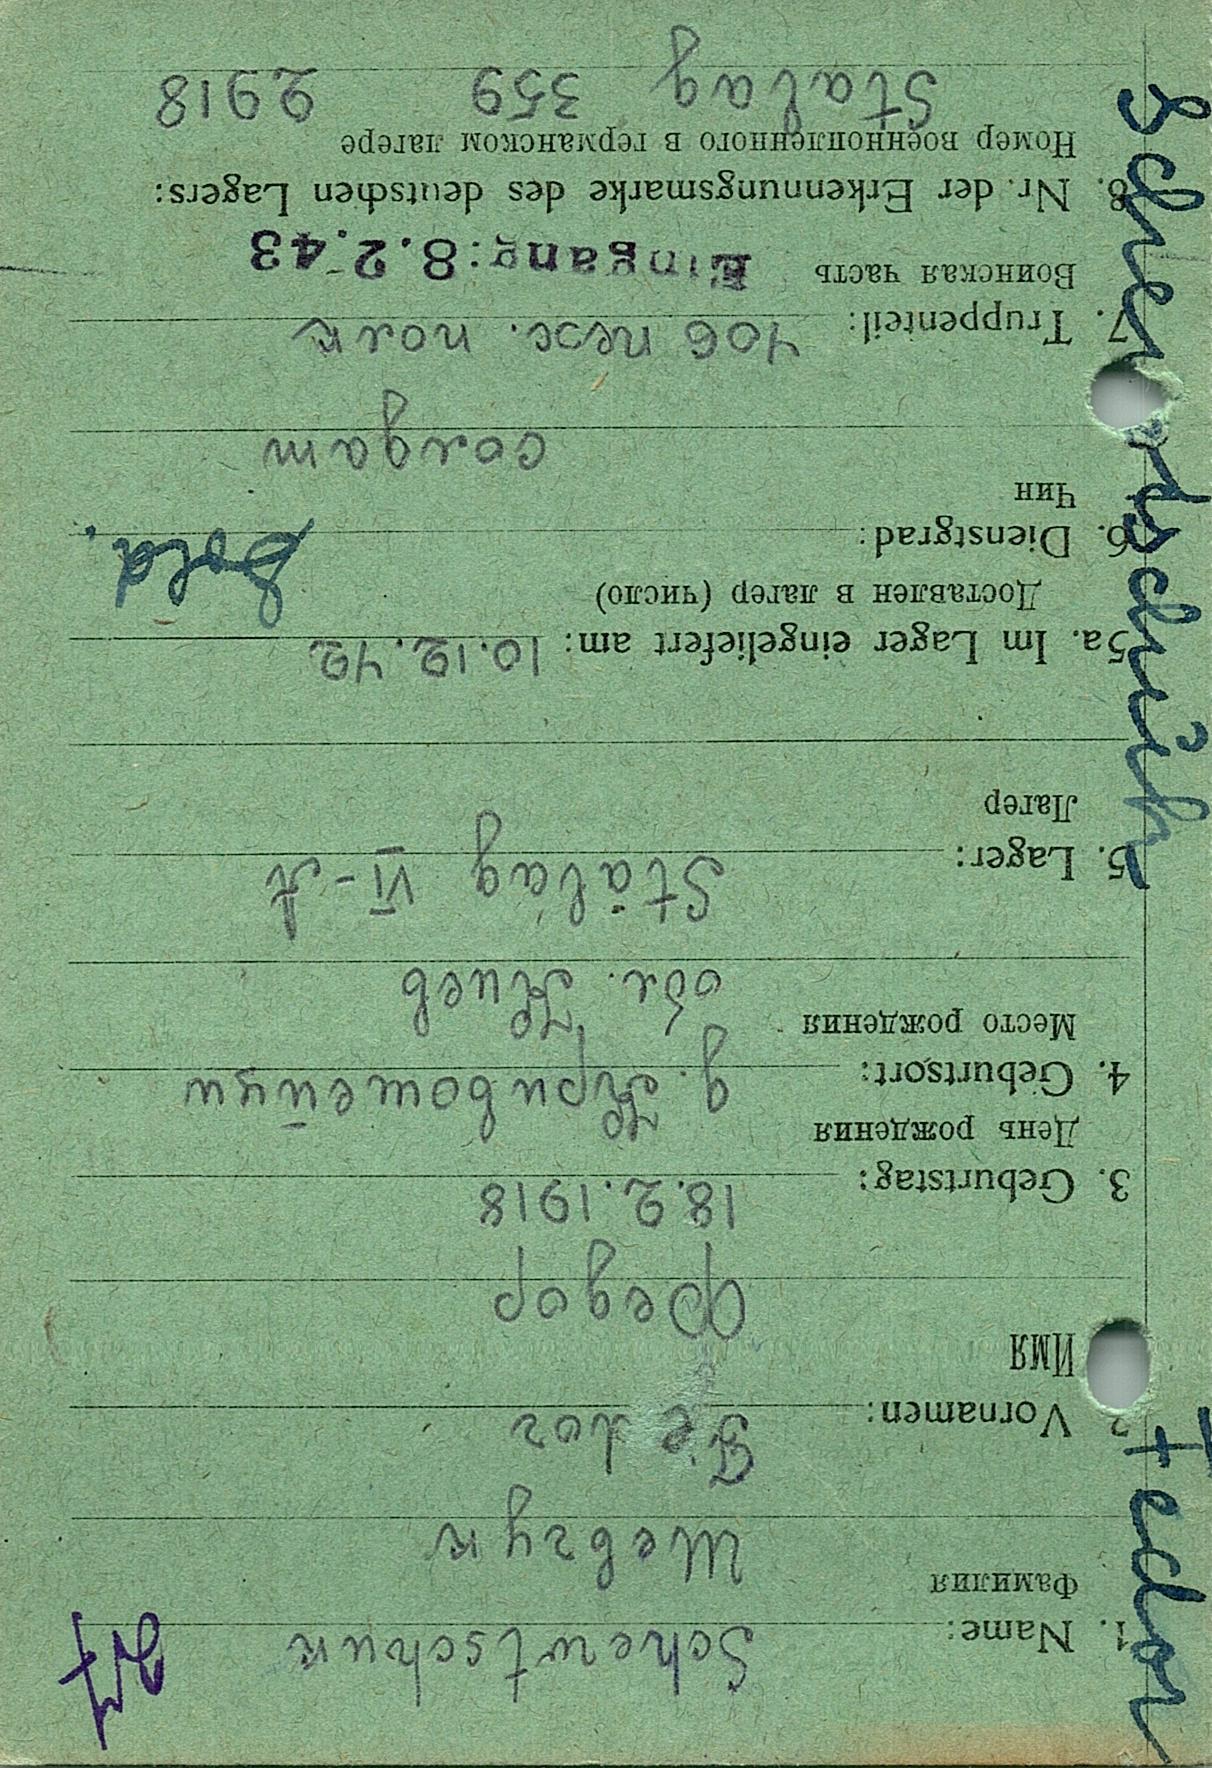 27
1. Name: Schewtschuk
Фамилия Шевчук
2. Vornamen: Fedor
Имя Федор
3. Geburtstag: 18.2.1918
День рождения
4. Geburtsort: д. Кривошейуи
Место рождения обл. Киев
5. Lager: Stalag VI-A
Лагер
5a. Im Lager eingeliefert am: 10.12.42
Доставлен в лагер (число)
6. Dienstgrad: Sold.
Чин
солдат
7. Truppenteil: 406 пех. полк
Воинская часть Eingang: 8.2.43
8. Nr. der Erkennungsmarke des deutschen Lagers:
Номер военнопленного в германском лагере
Stalag 359 2918
Fedor